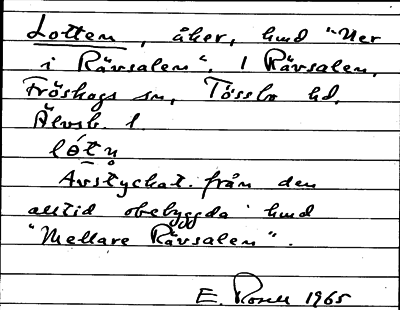 Lotten, åker, hmd "Ner
i Rävsalen". 1 Rävsalen,
Fröskogs sn, Tössbo hd,
Älvsb. l.
lótn̥
Avstyckat från den
alltid obebyggda hmd
"Mellare Rävsalen".
E. Rosell 1965